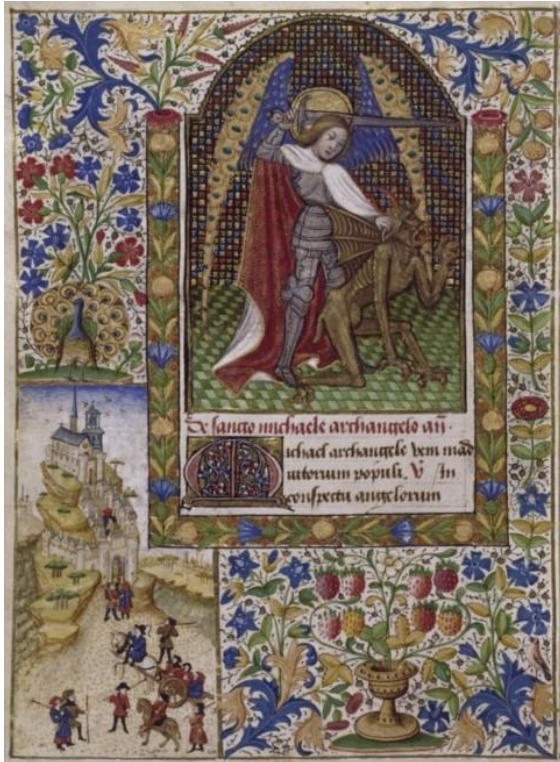 De sancto michaele archangelo añ.
Michael archangele veni in ad
iutorium populi. V̸ In
conspectu angelorum